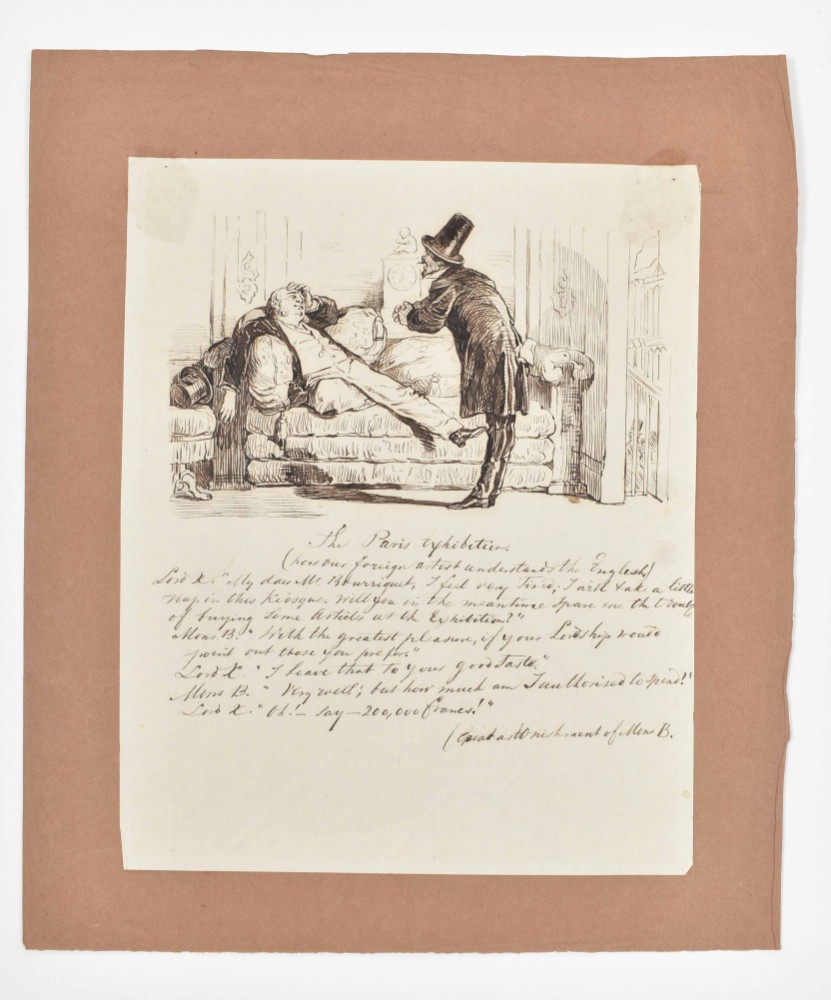 The Paris Exhibition.
(how our foreign artist understands the English)
Lord X. "My dear Mr. Bourriquet, I feel very Tired; I will take a little
nap in this Kiosque. Will you in the meantime spare me the trouble
of buying some Articles at the Exhibition?"
Mons B. "With the greatest pleasure, if your Lordship would
point out those you prefer."
Lord X. "I leave that to your good Taste."
Mons B. "Very well; but how much am I authorised to spend?"
Lord X. "Oh! – say – 200,000 francs!"
(Great astonishment of Mons B.